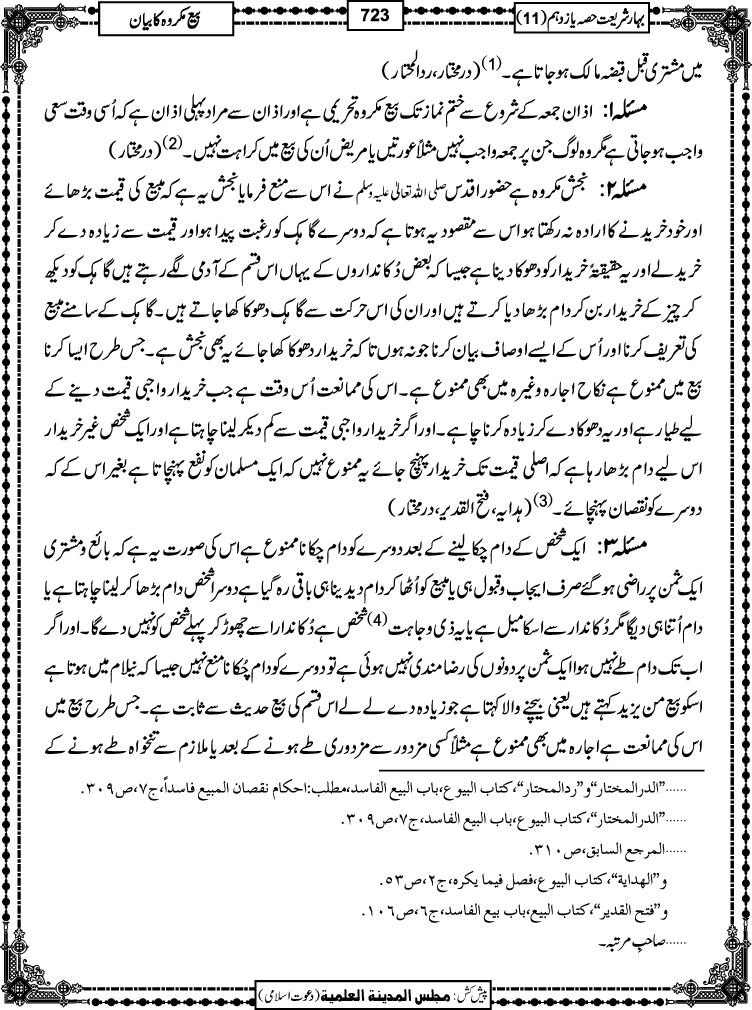 بہار شریعت حصہ یازدہم (11)
723
بیع مکروہ کا بیان
میں مشتری قبل قبضہ مالک ہوجاتا ہے۔(1) (درمختار، ردالمحتار)
مسئلہ ۱: اذان جمعہ کے شروع سے ختم نماز تک بیع مکروہ تحریمی ہے اور اذان سے مراد پہلی اذان ہے کہ اُسی وقت سعی
واجب ہوجاتی ہے مگر وہ لوگ جن پر جمعہ واجب نہیں مثلاً عورتیں یا مریض اُن کی بیع میں کراہت نہیں۔(2) (درمختار)
مسئلہ ۲: نجش مکروہ ہے حضور اقدس صلی اللہ تعالیٰ علیہ وسلم نے اس سے منع فرمایا نجش یہ ہے کہ مبیع کی قیمت بڑھائے
اور خود خریدنے کا ارادہ نہ رکھتا ہو اس سے مقصود یہ ہوتا ہے کہ دوسرے گاہک کو رغبت پیدا ہو اور قیمت سے زیادہ دے کر
خرید لے اور یہ حقیقۃً خریدار کو دھوکا دینا ہے جیسا کہ بعض دُکانداروں کے یہاں اس قسم کے آدمی لگے رہتے ہیں گاہک کو دیکھ
کر چیز کے خریدار بن کر دام بڑھا دیا کرتے ہیں اور ان کی اس حرکت سے گاہک دھوکا کھا جاتے ہیں۔ گاہک کے سامنے مبیع
کی تعریف کرنا اور اُس کے ایسے اوصاف بیان کرنا جو نہ ہوں تاکہ خریدار دھوکا کھا جائے یہ بھی نجش ہے۔ جس طرح ایسا کرنا
بیع میں ممنوع ہے نکاح اجارہ وغیرہ میں بھی ممنوع ہے۔ اس کی ممانعت اُس وقت ہے جب خریدار واجبی قیمت دینے کے
لیے طیار ہے اور یہ دھوکا دے کر زیادہ کرنا چاہے۔ اور اگر خریدار واجبی قیمت سے کم دیکر لینا چاہتا ہے اور ایک شخص غیر خریدار
اس لیے دام بڑھا رہا ہے کہ اصلی قیمت تک خریدار پہنچ جائے یہ ممنوع نہیں کہ ایک مسلمان کو نفع پہنچاتا ہے بغیر اس کے کہ
دوسرے کو نقصان پہنچائے۔(3) (ہدایہ، فتح القدیر، درمختار)
مسئلہ ۳: ایک شخص کے دام چکا لینے کے بعد دوسرے کو دام چکانا ممنوع ہے اس کی صورت یہ ہے کہ بائع و مشتری
ایک ثمن پر راضی ہوگئے صرف ایجاب و قبول ہی یا مبیع کو اُٹھا کر دام دیدینا ہی باقی رہ گیا ہے دوسرا شخص دام بڑھا کر لینا چاہتا ہے یا
دام اُتنا ہی دیگا مگر دُکاندار سے اسکا میل ہے یا یہ ذی وجاہت(4) شخص ہے دُکاندار اسے چھوڑ کر پہلے شخص کو نہیں دے گا۔ اور اگر
اب تک دام طے نہیں ہوا ایک ثمن پر دونوں کی رضامندی نہیں ہوئی ہے تو دوسرے کو دام چُکانا منع نہیں جیسا کہ نیلام میں ہوتا ہے
اسکو بیع من یزید کہتے ہیں یعنی بیچنے والا کہتا ہے جو زیادہ دے لے لے اس قسم کی بیع حدیث سے ثابت ہے۔ جس طرح بیع میں
اس کی ممانعت ہے اجارہ میں بھی ممنوع ہے مثلاً کسی مزدور سے مزدوری طے ہونے کے بعد یا ملازم سے تنخواہ طے ہونے کے
......”الدرالمختار“و ”ردالمحتار“، کتاب البیوع، باب البیع الفاسد، مطلب: احکام نقصان المبیع فاسداً، ج۷، ص۳۰۹.
......”الدرالمختار“، کتاب البیوع، باب البیع الفاسد، ج۷، ص۳۰۹.
......المرجع السابق، ص۳۱۰.
و ”الھدایۃ“، کتاب البیوع، فصل فیما یکرہ، ج۲، ص۵۳.
و ”فتح القدیر“، کتاب البیع، باب بیع الفاسد، ج۶، ص۱۰۶.
......صاحبِ مرتبہ۔
پیش کش: مجلس المدینۃ العلمیۃ (دعوت اسلامی)